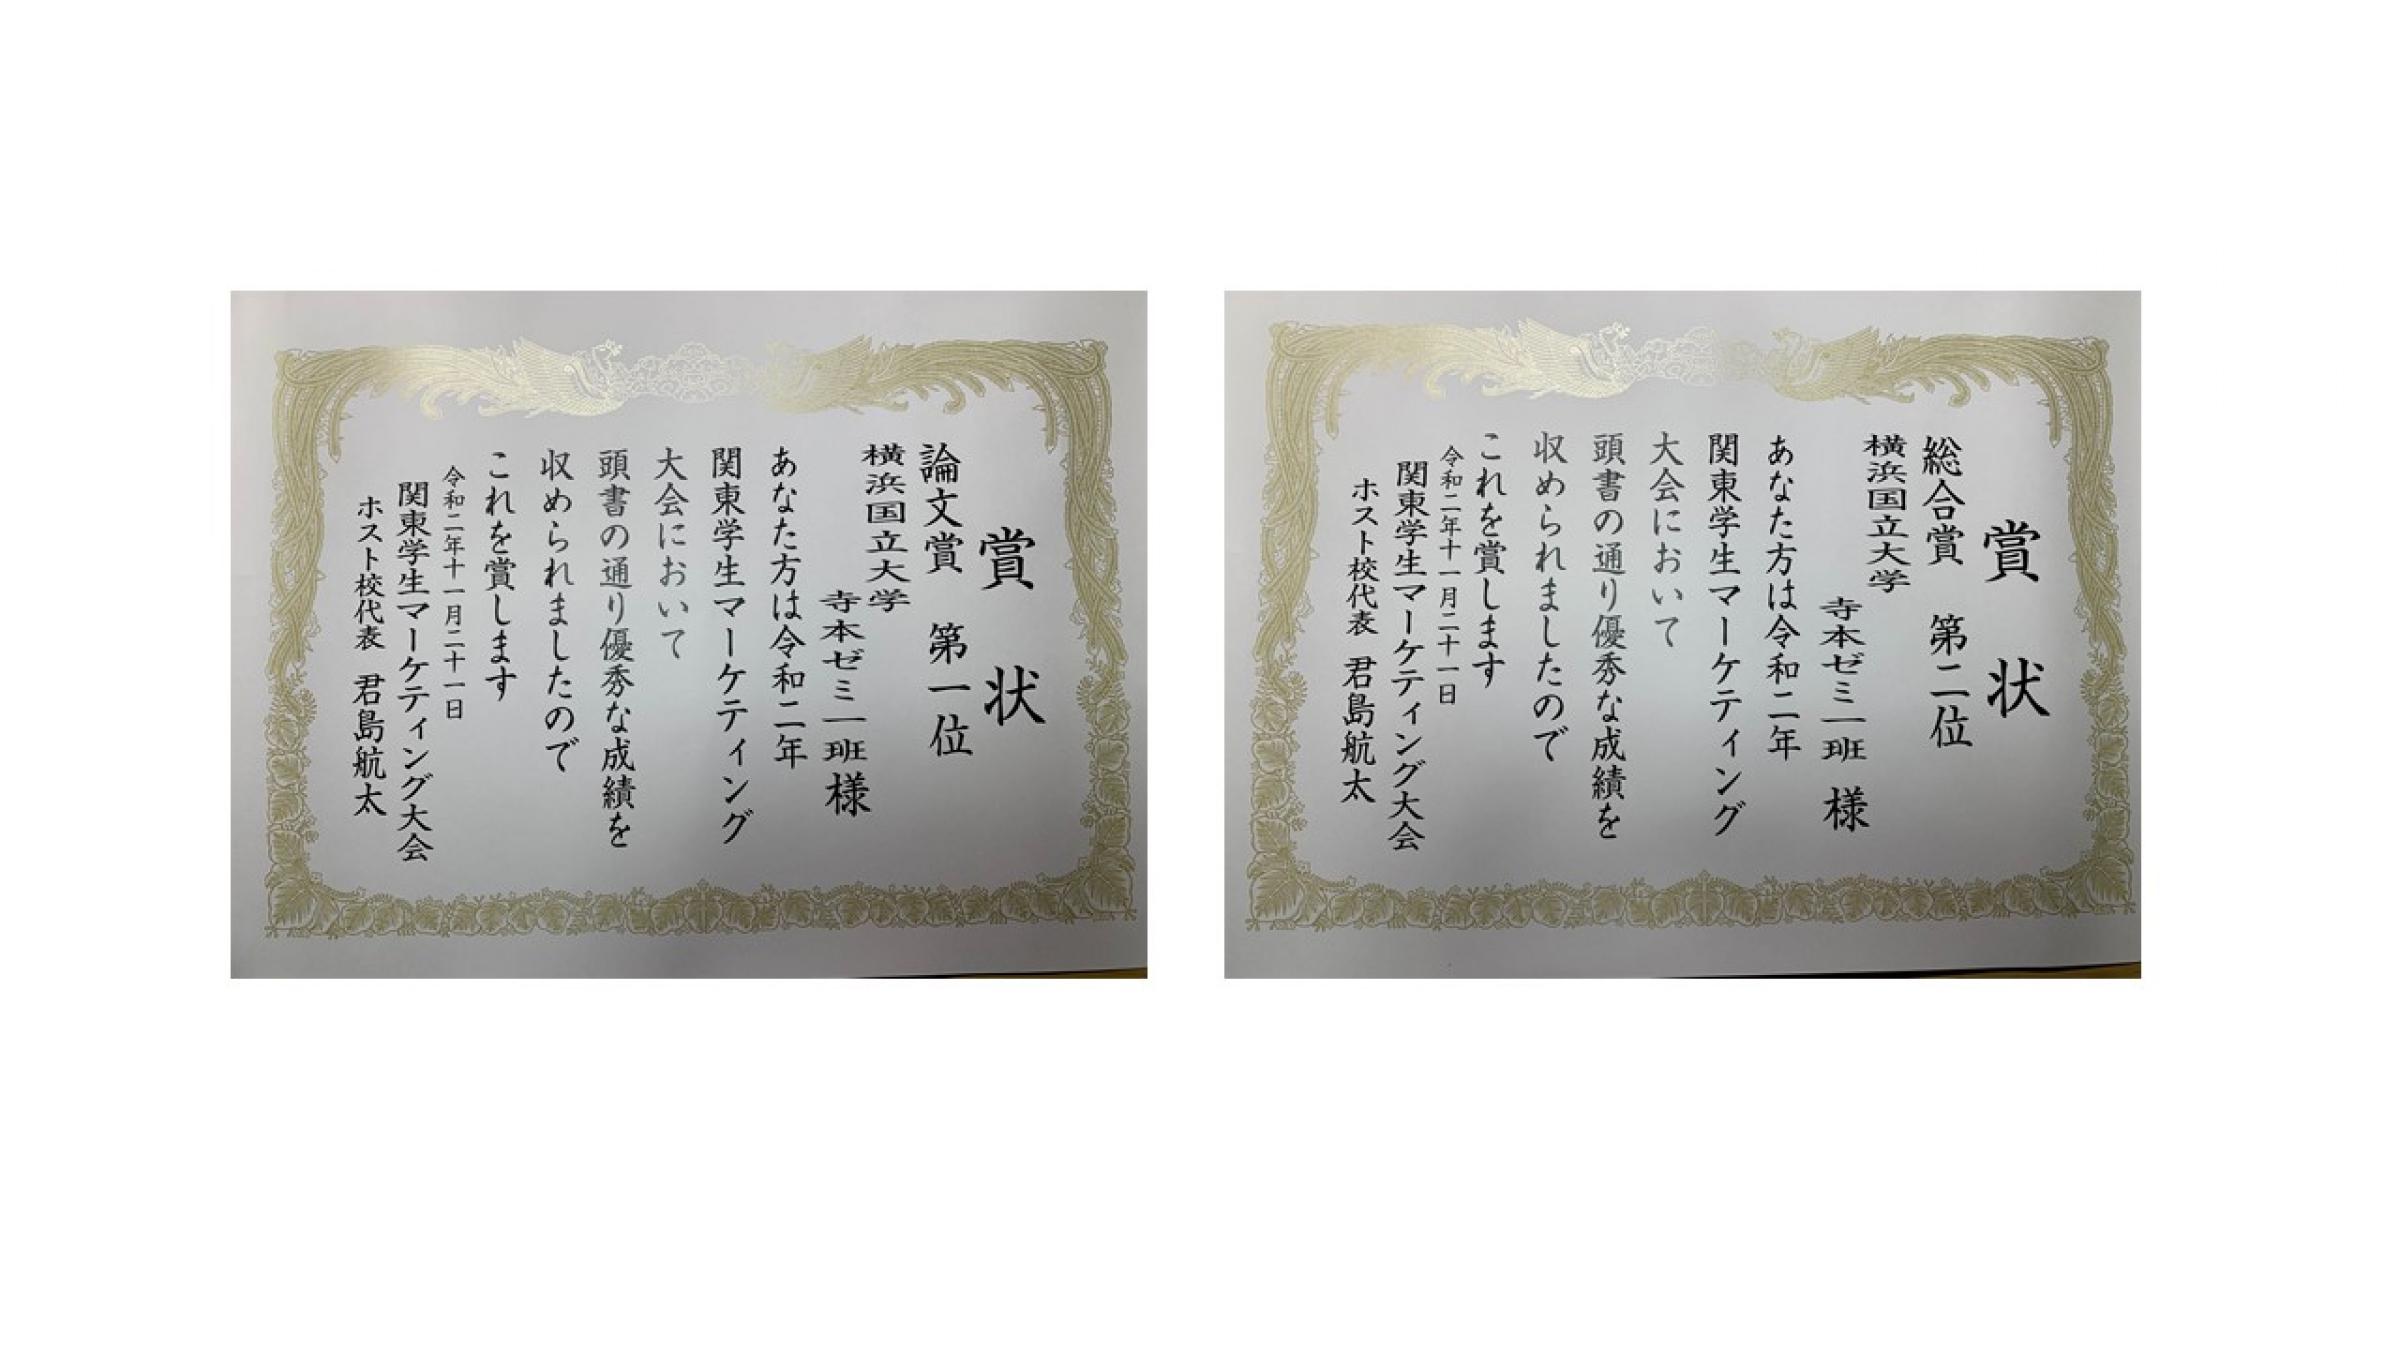 賞状
論文賞 第一位
横浜国立大学
寺本ゼミ一班 様
あなた方は令和二年
関東学生マーケティング
大会において
頭書の通り優秀な成績を
収められましたので
これを賞します
令和二年十一月二十一日
関東学生マーケティング大会
ホスト校代表 君島航太
賞状
総合賞 第二位
横浜国立大学
寺本ゼミ一班 様
あなた方は令和二年
関東学生マーケティング
大会において
頭書の通り優秀な成績を
収められましたので
これを賞します
令和二年十一月二十一日
関東学生マーケティング大会
ホスト校代表 君島航太